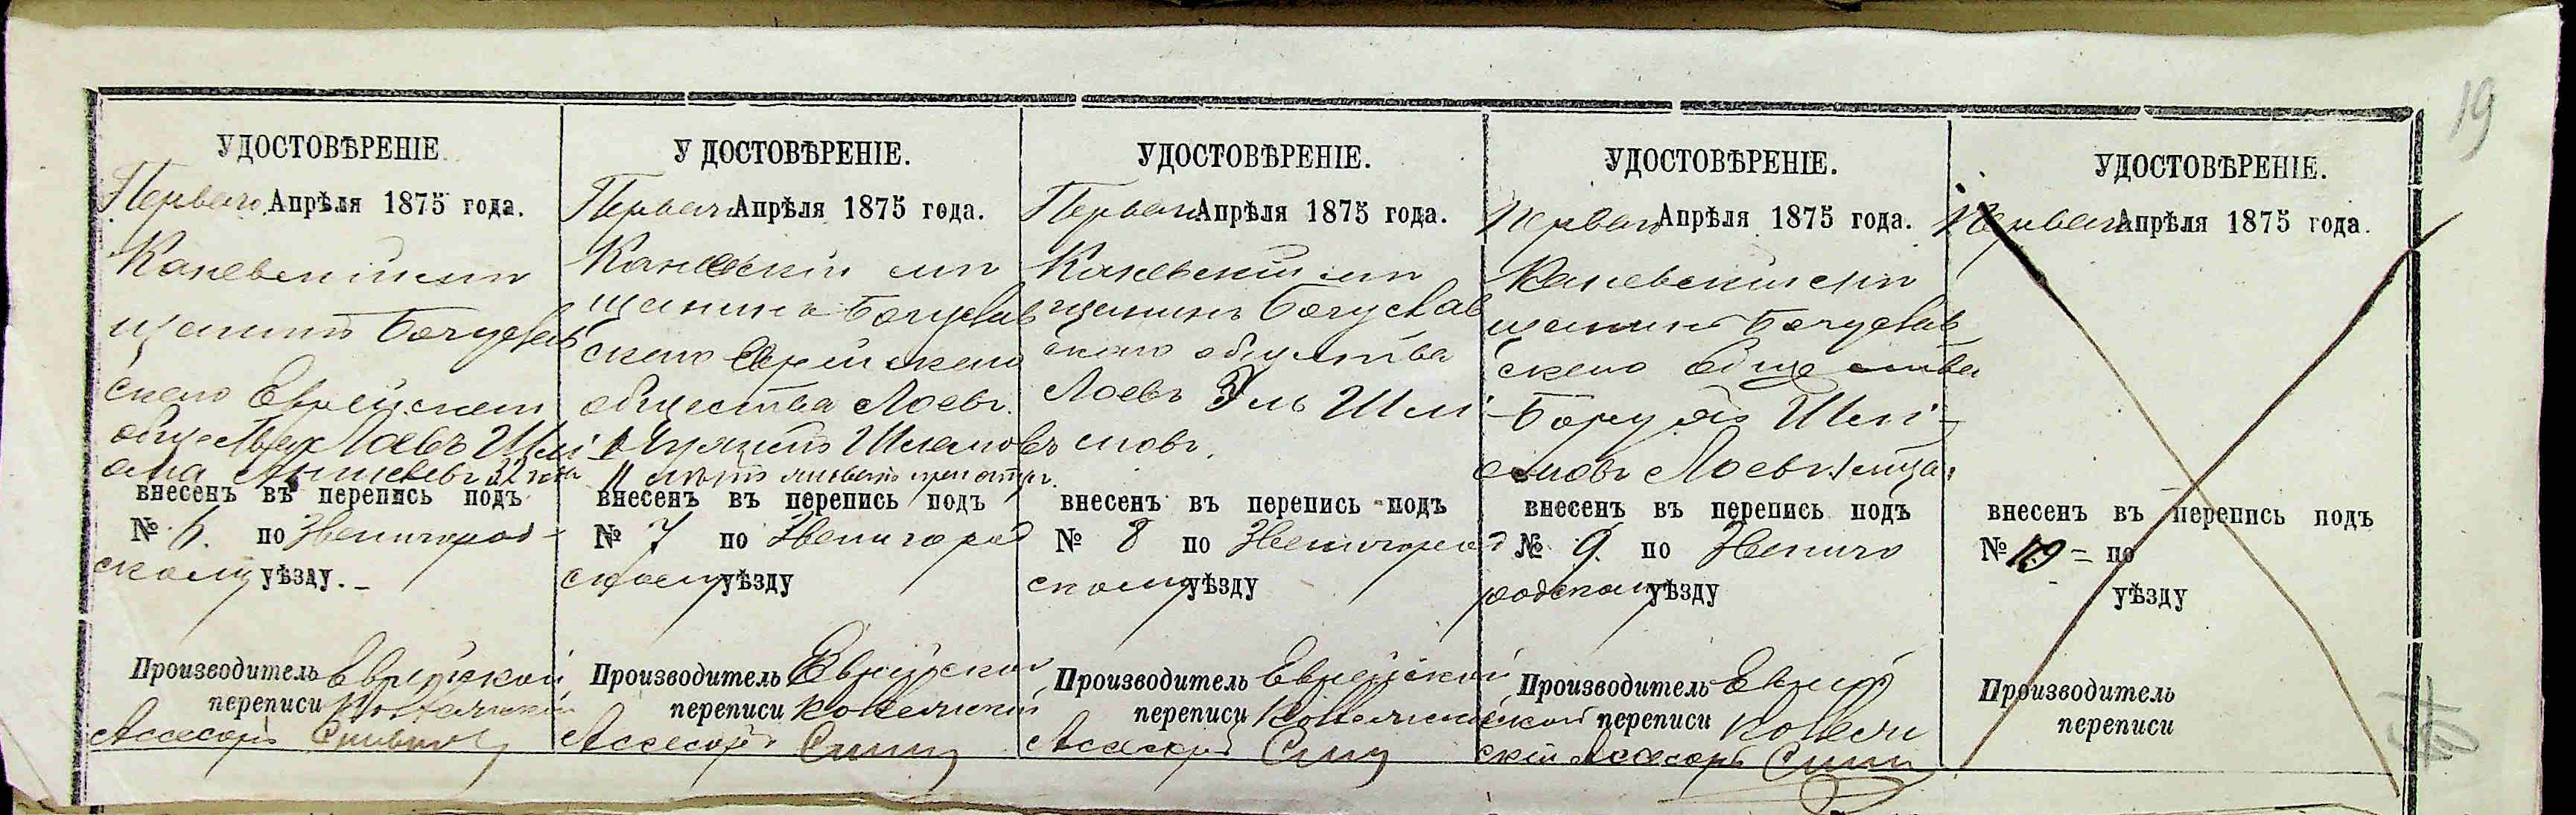 19
УДОСТОВѢРЕНІЕ.
Перваго Апрѣля 1875 года.
Каневскій мѣ
щанинъ Богуслав
скаго Еврейскаго
общества Лоевъ Шлі
ома 32
внесенъ въ перепись подъ
№ 6. по Звенигород-
скому уѣзду.
Производитель Еврейской
переписи
Ассесоръ
УДОСТОВѢРЕНІЕ.
Перваго Апрѣля 1875 года.
Каневскій мѣ
щанинъ Богуслав
скаго Еврейскаго
общества Лоевъ.
Шлемовъ
11 лѣтъ
внесенъ въ перепись подъ
№ 7 по Звенигород
скому уѣзду
Производитель Еврейской
переписи
Ассесоръ
УДОСТОВѢРЕНІЕ.
Перваго Апрѣля 1875 года.
Каневскій мѣ
щанинъ Богуслав
скаго общества
Лоевъ Шлі
омовъ.
внесенъ въ перепись подъ
№ 8 по Звенигород
скому уѣзду
Производитель Еврейской
переписи
Ассесоръ
УДОСТОВѢРЕНІЕ.
Перваго Апрѣля 1875 года.
Каневскій мѣ
щанинъ Богуслав
скаго общества
Борухъ Шлі-
омовъ Лоевъ
внесенъ въ перепись подъ
№ 9. по Звениго
родскому уѣзду
Производитель Еврей
ской переписи
скій Ассесоръ
УДОСТОВѢРЕНІЕ.
Перваго Апрѣля 1875 года.
внесенъ въ перепись подъ
№ по
уѣзду
Производитель
переписи